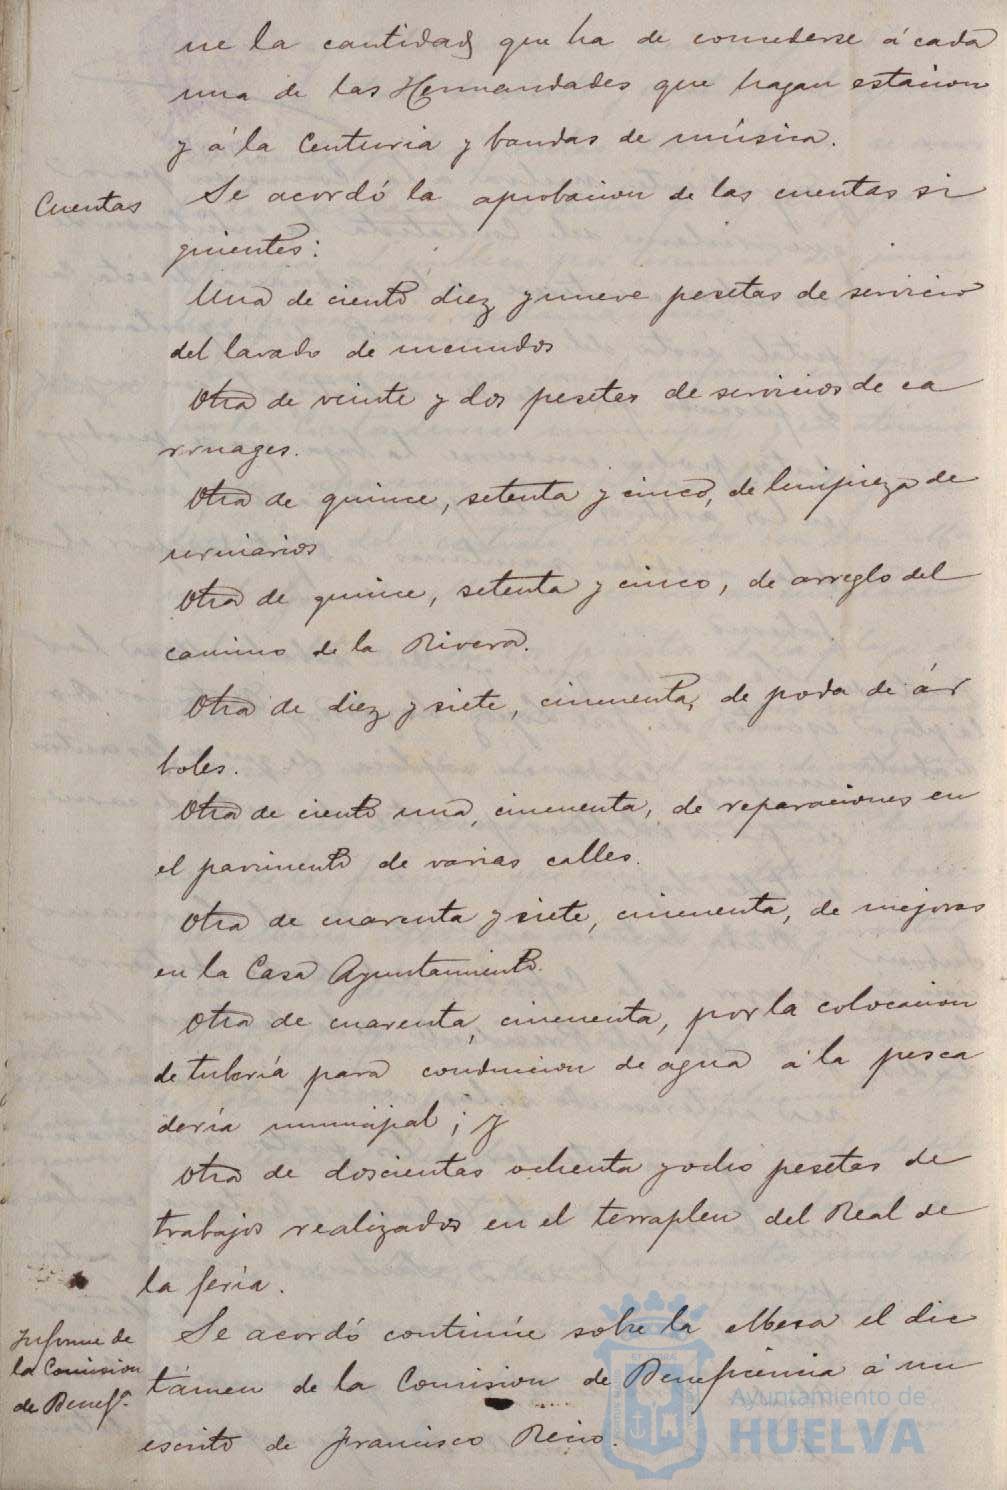 ne la cantidad que ha de concederse á cada
una de las Hermandades que hagan estacion
y á la Centuria y bandas de música.
Cuentas
Se acordó la aprobacion de las cuentas si
guientes:
Una de ciento diez y nueve pesetas de servicio
del lavado de menudos
Otra de veinte y dos pesetas de servicios de ca
rruages.
Otra de quince, setenta y cinco, de limpieza de
urinarios
Otra de quince, setenta y cinco, de arreglo del
camino de la Rivera.
Otra de diez y siete, cincuenta, de poda de ár
boles.
Otra de ciento una, cincuenta, de reparaciones en
el pavimento de varias calles.
Otra de cuarenta y siete, cincuenta, de mejoras
en la Casa Ayuntamiento.
Otra de cuarenta, cincuenta, por la colocacion
de tubería para conduccion de agua á la pesca
dería municipal; y
Otra de doscientas ochenta y ocho pesetas de
trabajos realizados en el terraplen del Real de
la feria.
Informe de
la Comision
de Benefª.
Se acordó continúe sobre la Mesa el dic
támen de la Comision de Beneficencia á un
escrito de Francisco Recio.
Ayuntamiento de
HUELVA